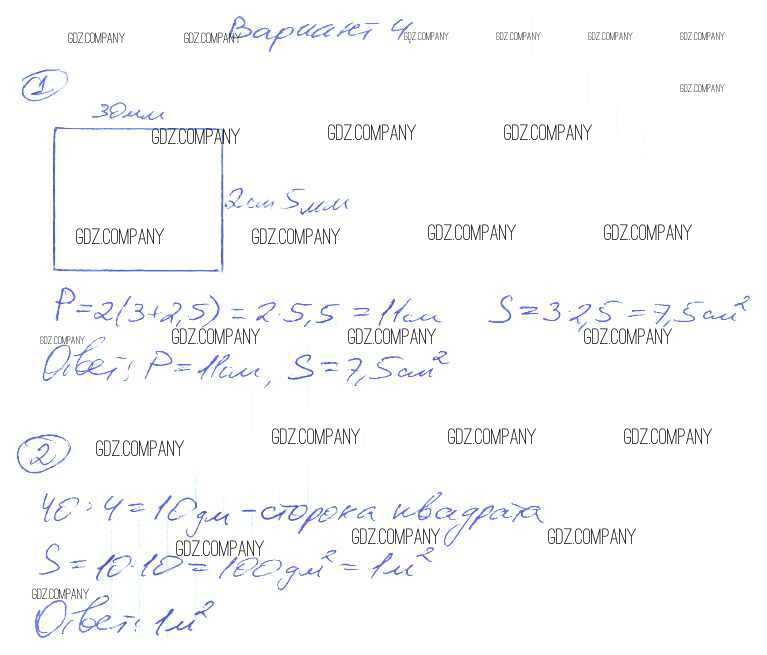 GDZ.COMPANY GDZ.COMPANY Вариант 4. GDZ.COMPANY GDZ.COMPANY GDZ.COMPANY GDZ.COMPANY
1 GDZ.COMPANY
30мм
GDZ.COMPANY GDZ.COMPANY GDZ.COMPANY
2см 5мм
GDZ.COMPANY GDZ.COMPANY GDZ.COMPANY GDZ.COMPANY
P=2(3+2,5)=2·5,5=11см S=3·2,5=7,5см²
GDZ.COMPANY GDZ.COMPANY GDZ.COMPANY GDZ.COMPANY
Ответ: P=11см, S=7,5см²
2 GDZ.COMPANY GDZ.COMPANY GDZ.COMPANY GDZ.COMPANY
40:4=10дм-сторона квадрата
GDZ.COMPANY GDZ.COMPANY GDZ.COMPANY
S=10·10=100дм²=1м²
GDZ.COMPANY
Ответ: 1м²